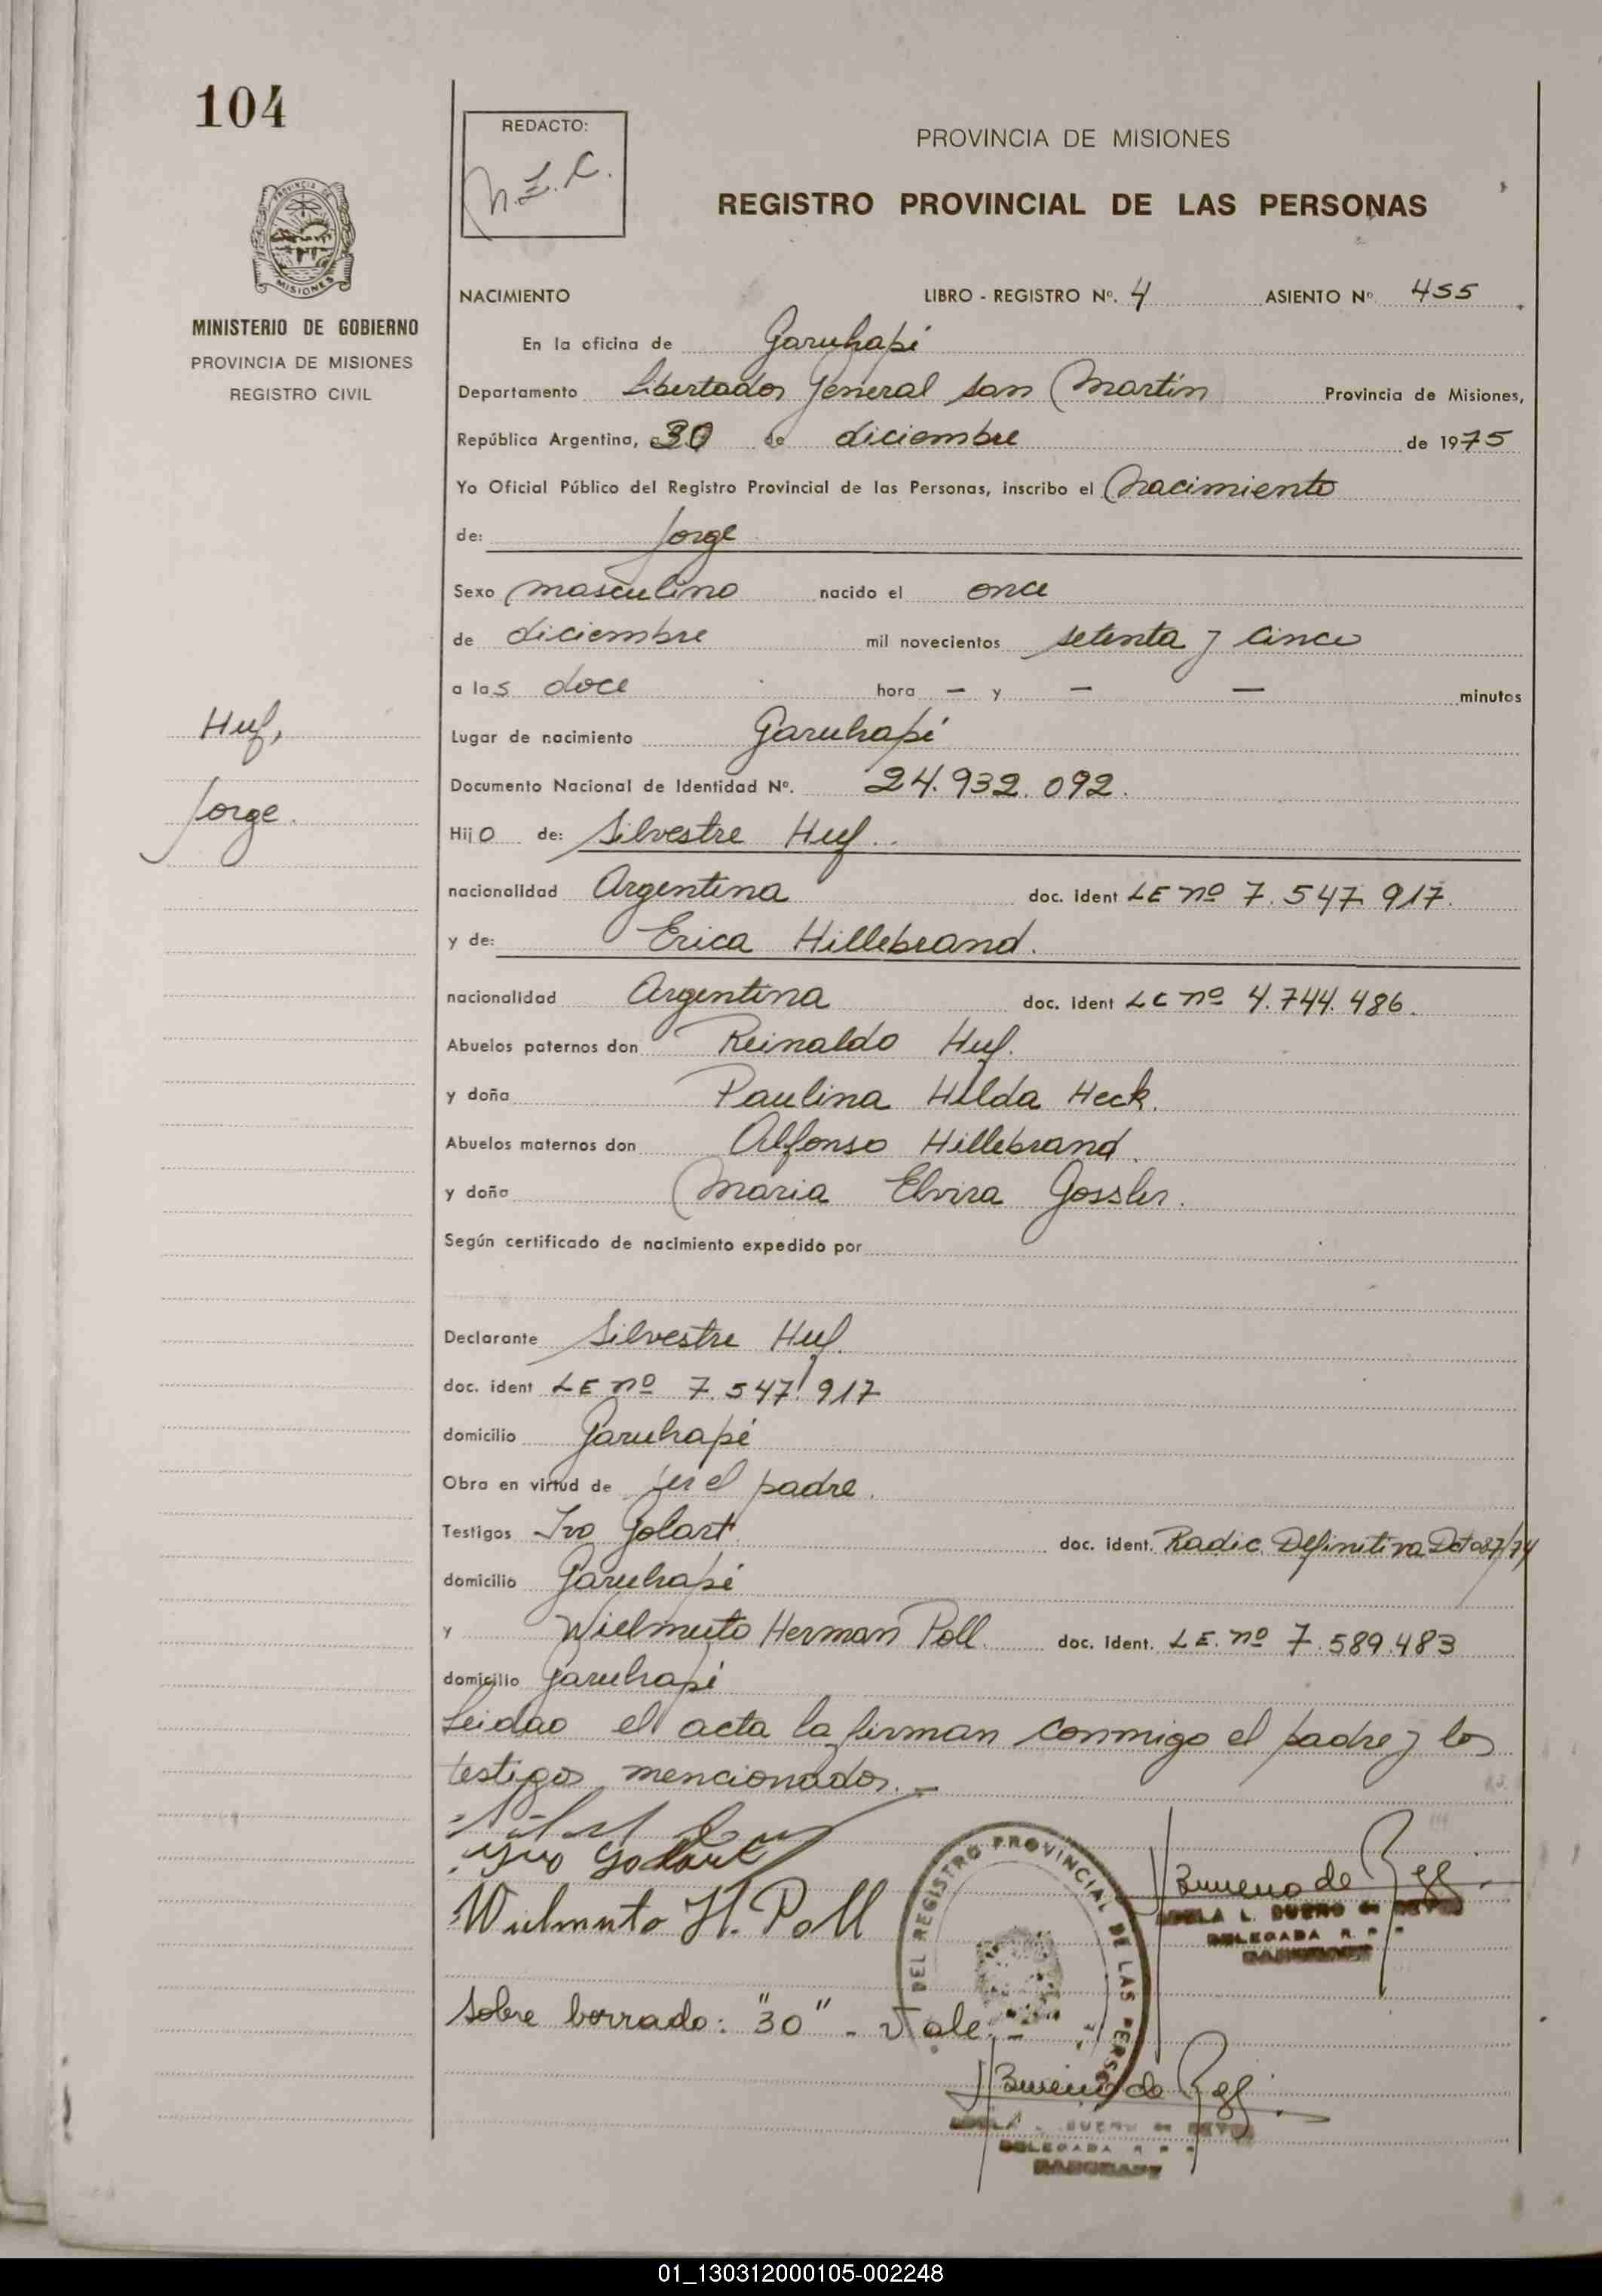 104
REDACTO:
PROVINCIA DE MISIONES
REGISTRO PROVINCIAL DE LAS PERSONAS
MISIONES
MINISTERIO DE GOBIERNO
PROVINCIA DE MISIONES
REGISTRO CIVIL
NACIMIENTO LIBRO - REGISTRO Nº. 4 ASIENTO Nº 455
En la oficina de Garuhapi
Departamento Libertador General San Martin Provincia de Misiones,
República Argentina, 30 de diciembre de 1975
Yo Oficial Público del Registro Provincial de las Personas, inscribo el Nacimiento
de: Jorge
Sexo masculino nacido el once
de diciembre mil novecientos setenta y cinco
a las doce hora — y — — minutos
Huf,
Jorge.
Lugar de nacimiento Garuhapi
Documento Nacional de Identidad Nº. 24.932.092.
Hijo de: Silvestre Huf.
nacionalidad Argentina doc. ident LE nº 7.547.917.
y de: Erica Hillebrand.
nacionalidad Argentina doc. ident LC nº 4.744.486.
Abuelos paternos don Reinaldo Huf.
y doña Paulina Hilda Heck.
Abuelos maternos don Alfonso Hillebrand.
y doña Maria Elvira Gossler.
Según certificado de nacimiento expedido por
Declarante Silvestre Huf.
doc. ident LE nº 7.547.917
domicilio Garuhapi
Obra en virtud de ser el padre.
Testigos Ivo Golart. doc. ident. Radic. Definitiva Dto 087/74
domicilio Garuhapi
y Wielmuto Herman Poll. doc. ident. L.E. nº 7.589.483
domicilio Garuhapi
Leidao el acta la firman conmigo el padre y los
testigos mencionados. —
Ivo Golart
Wielmuto H. Poll
DEL REGISTRO PROVINCIAL DE LAS PERSO
Bueno de
ADELA L. BUENO de
DELEGADA R. P. P.
Sobre borrado: "30" - Vale. -
Bueno de
ADELA L. BUENO de
DELEGADA R P P
01_130312000105-002248